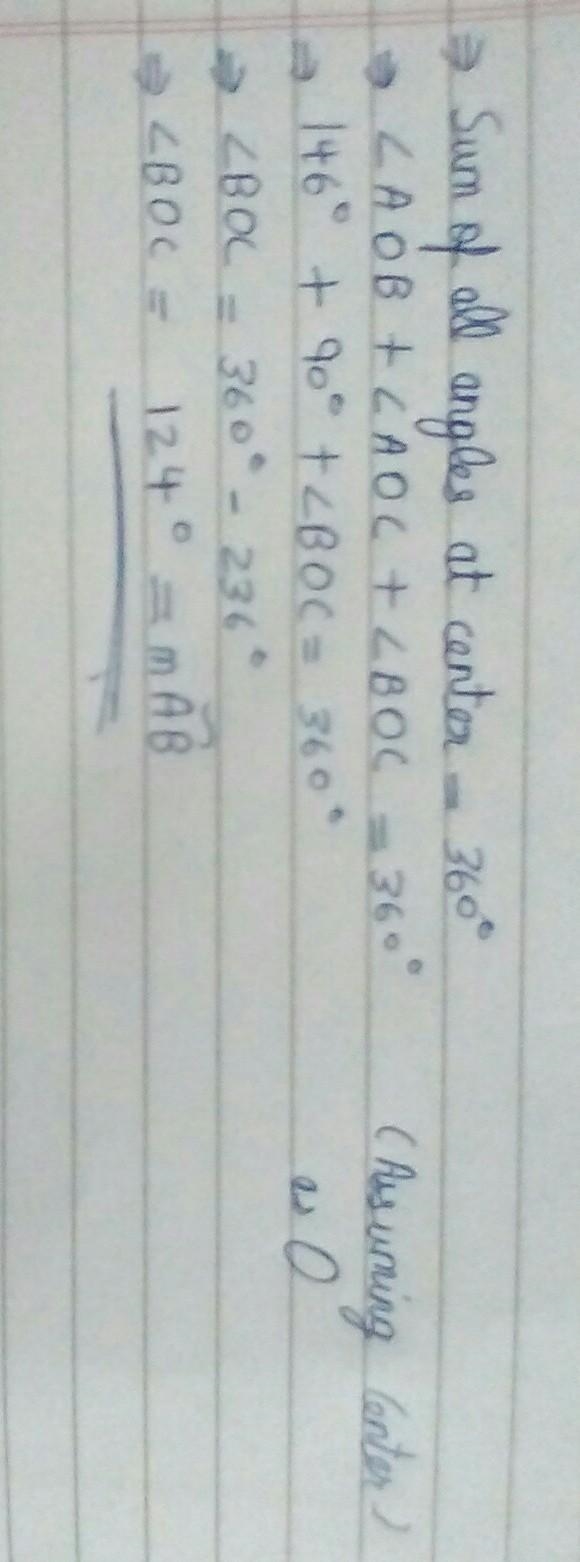 ⇒ Sum of all angles at center = 360°
⇒ ∠AOB + ∠AOC + ∠BOC = 360° (Assuming Center)
⇒ 146° + 90° + ∠BOC = 360° as O
⇒ ∠BOC = 360° - 236°
⇒ ∠BOC = 124° = m A͡B